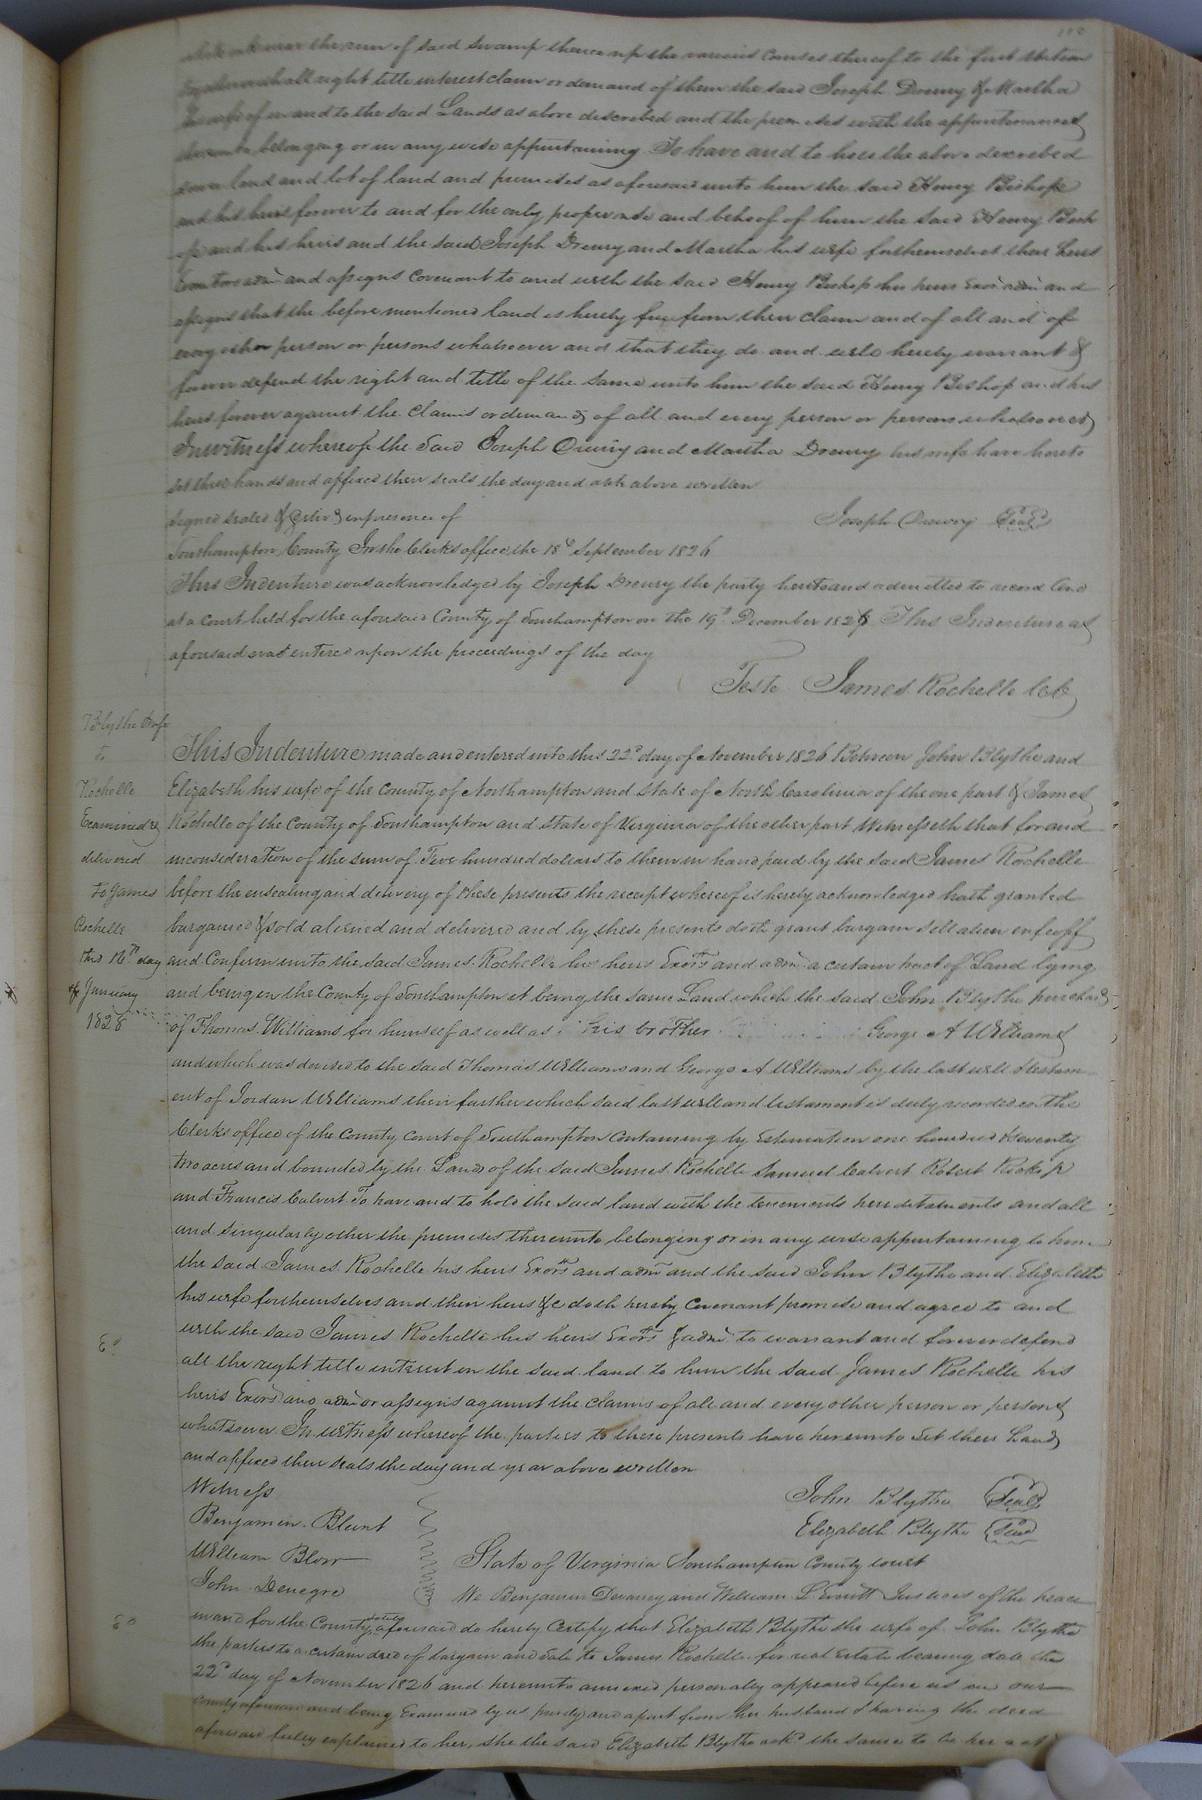 near the run of said swamp thence up the various courses thereof to the first station
all right title interest claim or demand of them the said Joseph Drewry & Martha
his wife of in and to the said Lands as above described and the premises with the appurtenances
thereunto belonging or in any wise appertaining To have and to hold the above described
land and lot of land and premises as aforesaid unto him the said Henry Bishop
and his heirs forever to and for the only proper use and behoof of him the said Henry Bish
op and his heirs and the said Joseph Drewry and Martha his wife for themselves their heirs
Exectors adm and assigns covenant to and with the said Henry Bishop his heirs Exor adm and
assigns that the before mentioned land is hereby free from their claim and of all and of
every other person or persons whatsoever and that they do and will hereby warrant &
forever defend the right and title of the same unto him the said Henry Bishop and his
heirs forever against the claims or demands of all and every person or persons whatsoever
In witness whereof the said Joseph Drewry and Martha Drewry his wife have hereto
set their hands and affixed their seals the day and date above written
Signed sealed & deliv.d in presence of
Joseph Drewry Seal
Southampton County In the Clerks office the 18th September 1826
This Indenture was acknowledged by Joseph Drewry the party hereto and admitted to record And
at a court held for the aforesaid County of Southampton on the 19th December 1826 This Indenture as
aforesaid was entered upon the proceedings of the day
Teste James Rochelle Clk
Blythe & wife
to
Rochelle
Examined &
delivered
to James
Rochelle
this 16th day
of January
1828
This Indenture made and entered into this 22d day of November 1826 Between John Blythe and
Elizabeth his wife of the County of Northampton and State of North Carolina of the one part & James
Rochelle of the County of Southampton and State of Virginia of the other part Witnesseth that for and
in consideration of the sum of Five hundred dollars to them in hand paid by the said James Rochelle
before the ensealing and delivery of these presents the receipt whereof is hereby acknowledged hath granted
bargained & sold aliened and delivered and by these presents doth grant bargain sell alien enfeoff
and Confirm unto the said James Rochelle his heirs Exors and adm a certain tract of Land lying
and being in the County of Southampton it being the same Land which the said John Blythe purchasd
of Thomas Williams for himself as well as his brother George A Williams
and which was devised to the said Thomas Williams and George A Williams by the last will & testam
ent of Jordan Williams their father which said last will and testament is duly recorded in the
Clerks office of the County Court of Southampton Containing by Estimation one hundred & seventy
two acres and bounded by the Lands of the said James Rochelle Samuel Calvert Robert Ricks jr
and Francis Calvert To have and to hold the said land with the tenements hereditaments and all
and singularly other the premises thereunto belonging or in any wise appertaining to him
the said James Rochelle his heirs Exors and adm and the said John Blythe and Elizabeth
his wife for themselves and their heirs &c doth hereby Covenant promise and agree to and
with the said James Rochelle his heirs Exors & adm to warrant and forever defend
all the right title interest in the said land to him the said James Rochelle his
heirs Exors and adm or assigns against the claims of all and every other person or persons
whatsoever In witness whereof the parties to these presents have hereunto set their hands
and affixed their seals the day and year above written
Witness
Benjamin Blunt
William Blow
John Denegre
John Blythe Seal
Elizabeth Blythe Seal
State of Virginia Southampton County court
We Benjamin Devaney and William L Everitt Justices of the peace
in and for the County & State aforesaid do hereby Certify that Elizabeth Blythe the wife of John Blythe
the parties to a certain deed of bargain and sale to James Rochelle for real Estate bearing date the
22d day of November 1826 and hereunto annexed personally appeared before us in our
County aforesaid and being Examined by us privily and apart from her husband & having the deed
aforesaid fully explained to her, she the said Elizabeth Blythe ackd the same to be her act